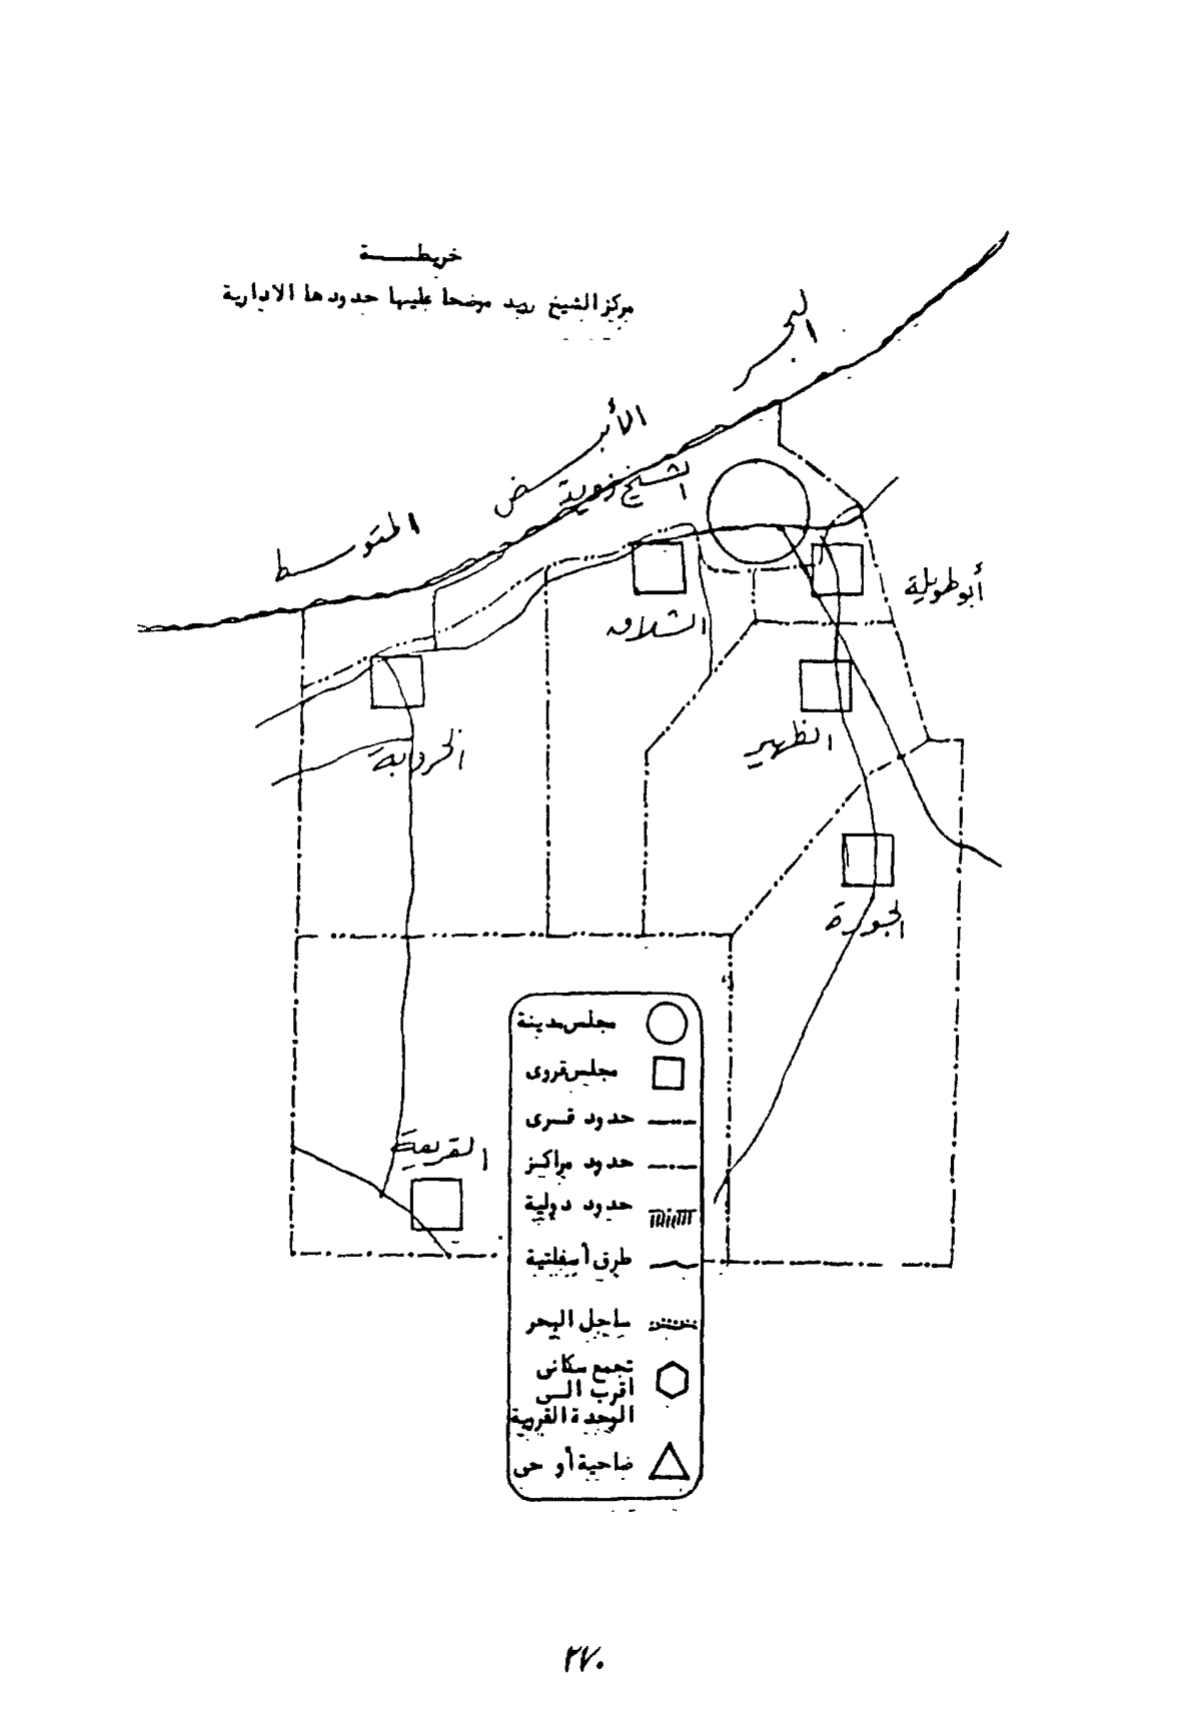 خريطـــــة
مركز الشيخ زويد موضحا عليها حدودها الادارية
البحر
الأبيض
المتوسط
الشيخ زويد
أبو طويلة
الشلاق
الظهير
الخروبة
الجورة
القريعة
مجلس مدينة
مجلس قروى
حدود قـرى
حدود مراكـز
حدود دولية
طرق أسفلتية
ساحل البحر
تجمع سكانى
أقرب الـى
الوحدة القروية
ضاحية أو حى
٢٧٠